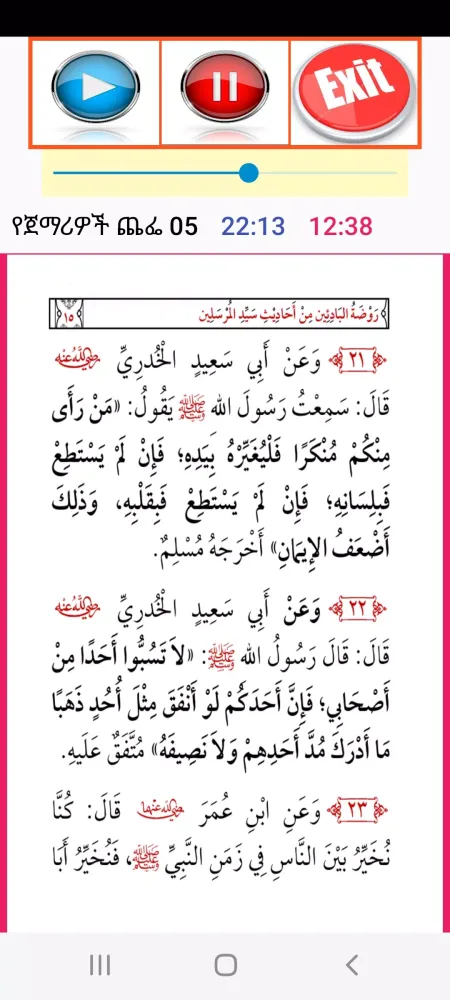 Exit
የጀማሪዎች ጨፌ 05 22:13 12:38
رَوْضَةُ البَادِئِين مِنْ أَحَادِيْثِ سَيِّدِ المُرْسَلِين ١٥
٢١ وَعَنْ أَبِي سَعِيدٍ الْخُدرِيِّ رضي الله عنه
قَالَ: سَمِعْتُ رَسُولَ الله ﷺ يَقُولُ: «مَنْ رَأَى
مِنْكُمْ مُنْكَرًا فَلْيُغَيِّرْهُ بِيَدِهِ؛ فَإِنْ لَمْ يَسْتَطِعْ
فَبِلِسَانِهِ؛ فَإِنْ لَمْ يَسْتَطِعْ فَبِقَلْبِهِ، وَذَلِكَ
أَضْعَفُ الإِيمَانِ» أَخْرَجَهُ مُسْلِمٌ.
٢٢ وَعَنْ أَبِي سَعِيدٍ الْخُدرِيِّ رضي الله عنه
قَالَ: قَالَ رَسُولُ الله ﷺ: «لاَ تَسُبُّوا أَحَدًا مِنْ
أَصْحَابِي؛ فَإِنَّ أَحَدَكُمْ لَوْ أَنْفَقَ مِثْلَ أُحُدٍ ذَهَبًا
مَا أَدْرَكَ مُدَّ أَحَدِهِمْ وَلاَ نَصِيفَهُ» مُتَّفَقٌ عَلَيهِ.
٢٣ وَعَنِ ابْنِ عُمَرَ رضي الله عنهما قَالَ: كُنَّا
نُخَيِّرُ بَيْنَ النَّاسِ فِي زَمَنِ النَّبِيِّ ﷺ، فَنُخَيِّرُ أَبَا